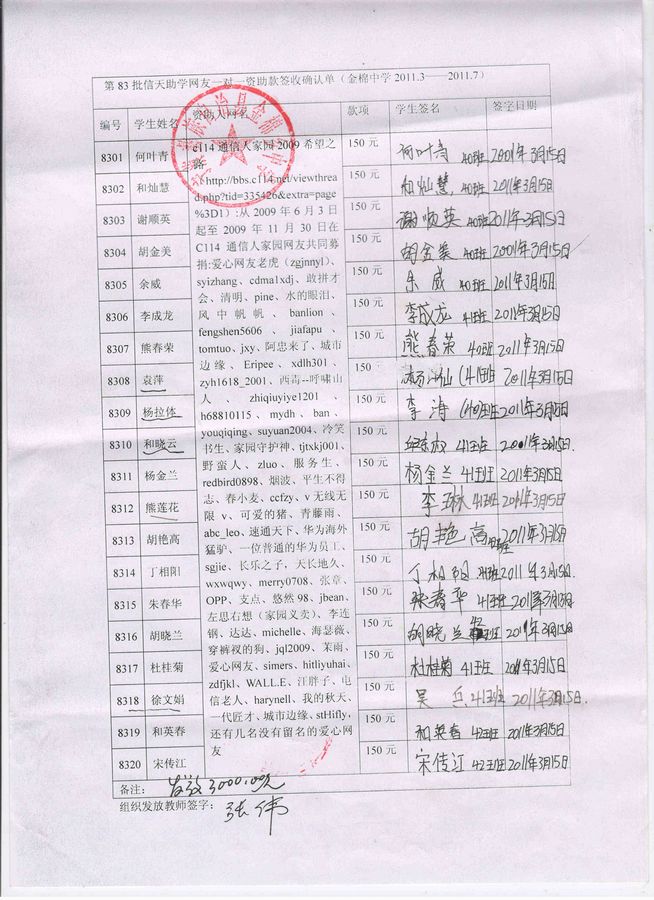 第 83 批信天助学网友一对一资助款签收确认单（金棉中学 2011.3——2011.7）
编号 学生姓名 资助人网名 款项 学生签名 签字日期
8301 何叶青 150 元 何叶青 40班 2001年3月15日
8302 和灿慧 150 元 和灿慧 40班 2011年3月15日
8303 谢顺英 150 元 谢顺英 40班 2011年3月15日
8304 胡金美 150 元 胡金美 40班 2001年3月15日
8305 余威 150 元 余威 40班 2011年3月15日
8306 李成龙 150 元 李成龙 41班 2011年3月15日
8307 熊春荣 150 元 熊春荣 40班 2011年3月15日
8308 袁萍 150 元 41班 2011年3月15日
8309 杨拉体 150 元 李涛 (40)班 2011年3月15日
8310 和晓云 150 元 41班 2011年3月15日
8311 杨金兰 150 元 杨金兰 41班 2011年3月15日
8312 熊莲花 150 元 李 41班 2011年3月15日
8313 胡艳高 150 元 胡艳高 2011年3月15日
8314 丁相阳 150 元 丁相阳 2011年3月15日
8315 朱春华 150 元 朱春华 41班 2011年3月15日
8316 胡晓兰 150 元 胡晓兰 2011年3月15日
8317 杜桂菊 150 元 杜桂菊 41班 2011年3月15日
8318 徐文娟 150 元 吴 41班 2011年3月15日
8319 和英春 150 元 和英春 42班 2011年3月15日
8320 宋传江 150 元 宋传江 42班 2011年3月15日
c114 通信人家园 2009 希望之
路
（http://bbs.c114.net/viewthrea
d.php?tid=335426&extra=page
%3D1）:从 2009 年 6 月 3 日
起至 2009 年 11 月 30 日在
C114 通信人家园网友共同募
捐:爱心网友老虎 (zgjnnyl)、
syizhang、cdma1xdj、敢拼才
会、清明、pine、水的眼泪、
风中帆帆、banlion、
fengshen5606、jiafapu、
tomtuo、jxy、阿忠来了、城市
边缘、Eripee、xdlh301、
zyh1618_2001、西毒--呼啸山
人、zhiqiuyiye1201、
h68810115、mydh、ban、
youqiqing、suyuan2004、冷笑
书生、家园守护神、tjtxkj001、
野蛮人、zluo、服务生、
redbird0898、烟波、平生不得
志、春小麦、ccfzy、v 无线无
限 v、可爱的猪、青藤雨、
abc_leo、速通天下、华为海外
猛驴、一位普通的华为员工、
sgjie、长乐之子，天长地久、
wxwqwy、merry0708、张章、
OPP、支点、悠然 98、jbean、
左思右想（家园义卖）、李连
钢、达达、michelle、海瑟薇、
穿裤衩的狗、jql2009、茉雨、
爱心网友、simers、hitliyuhai、
zdfjkl、WALL.E、汪胖子、电
信老人、harynell、我的秋天、
一代匠才、城市边缘、stHifly，
还有几名没有留名的爱心网
友
备注： 发放3000.00元
组织发放教师签字： 张伟